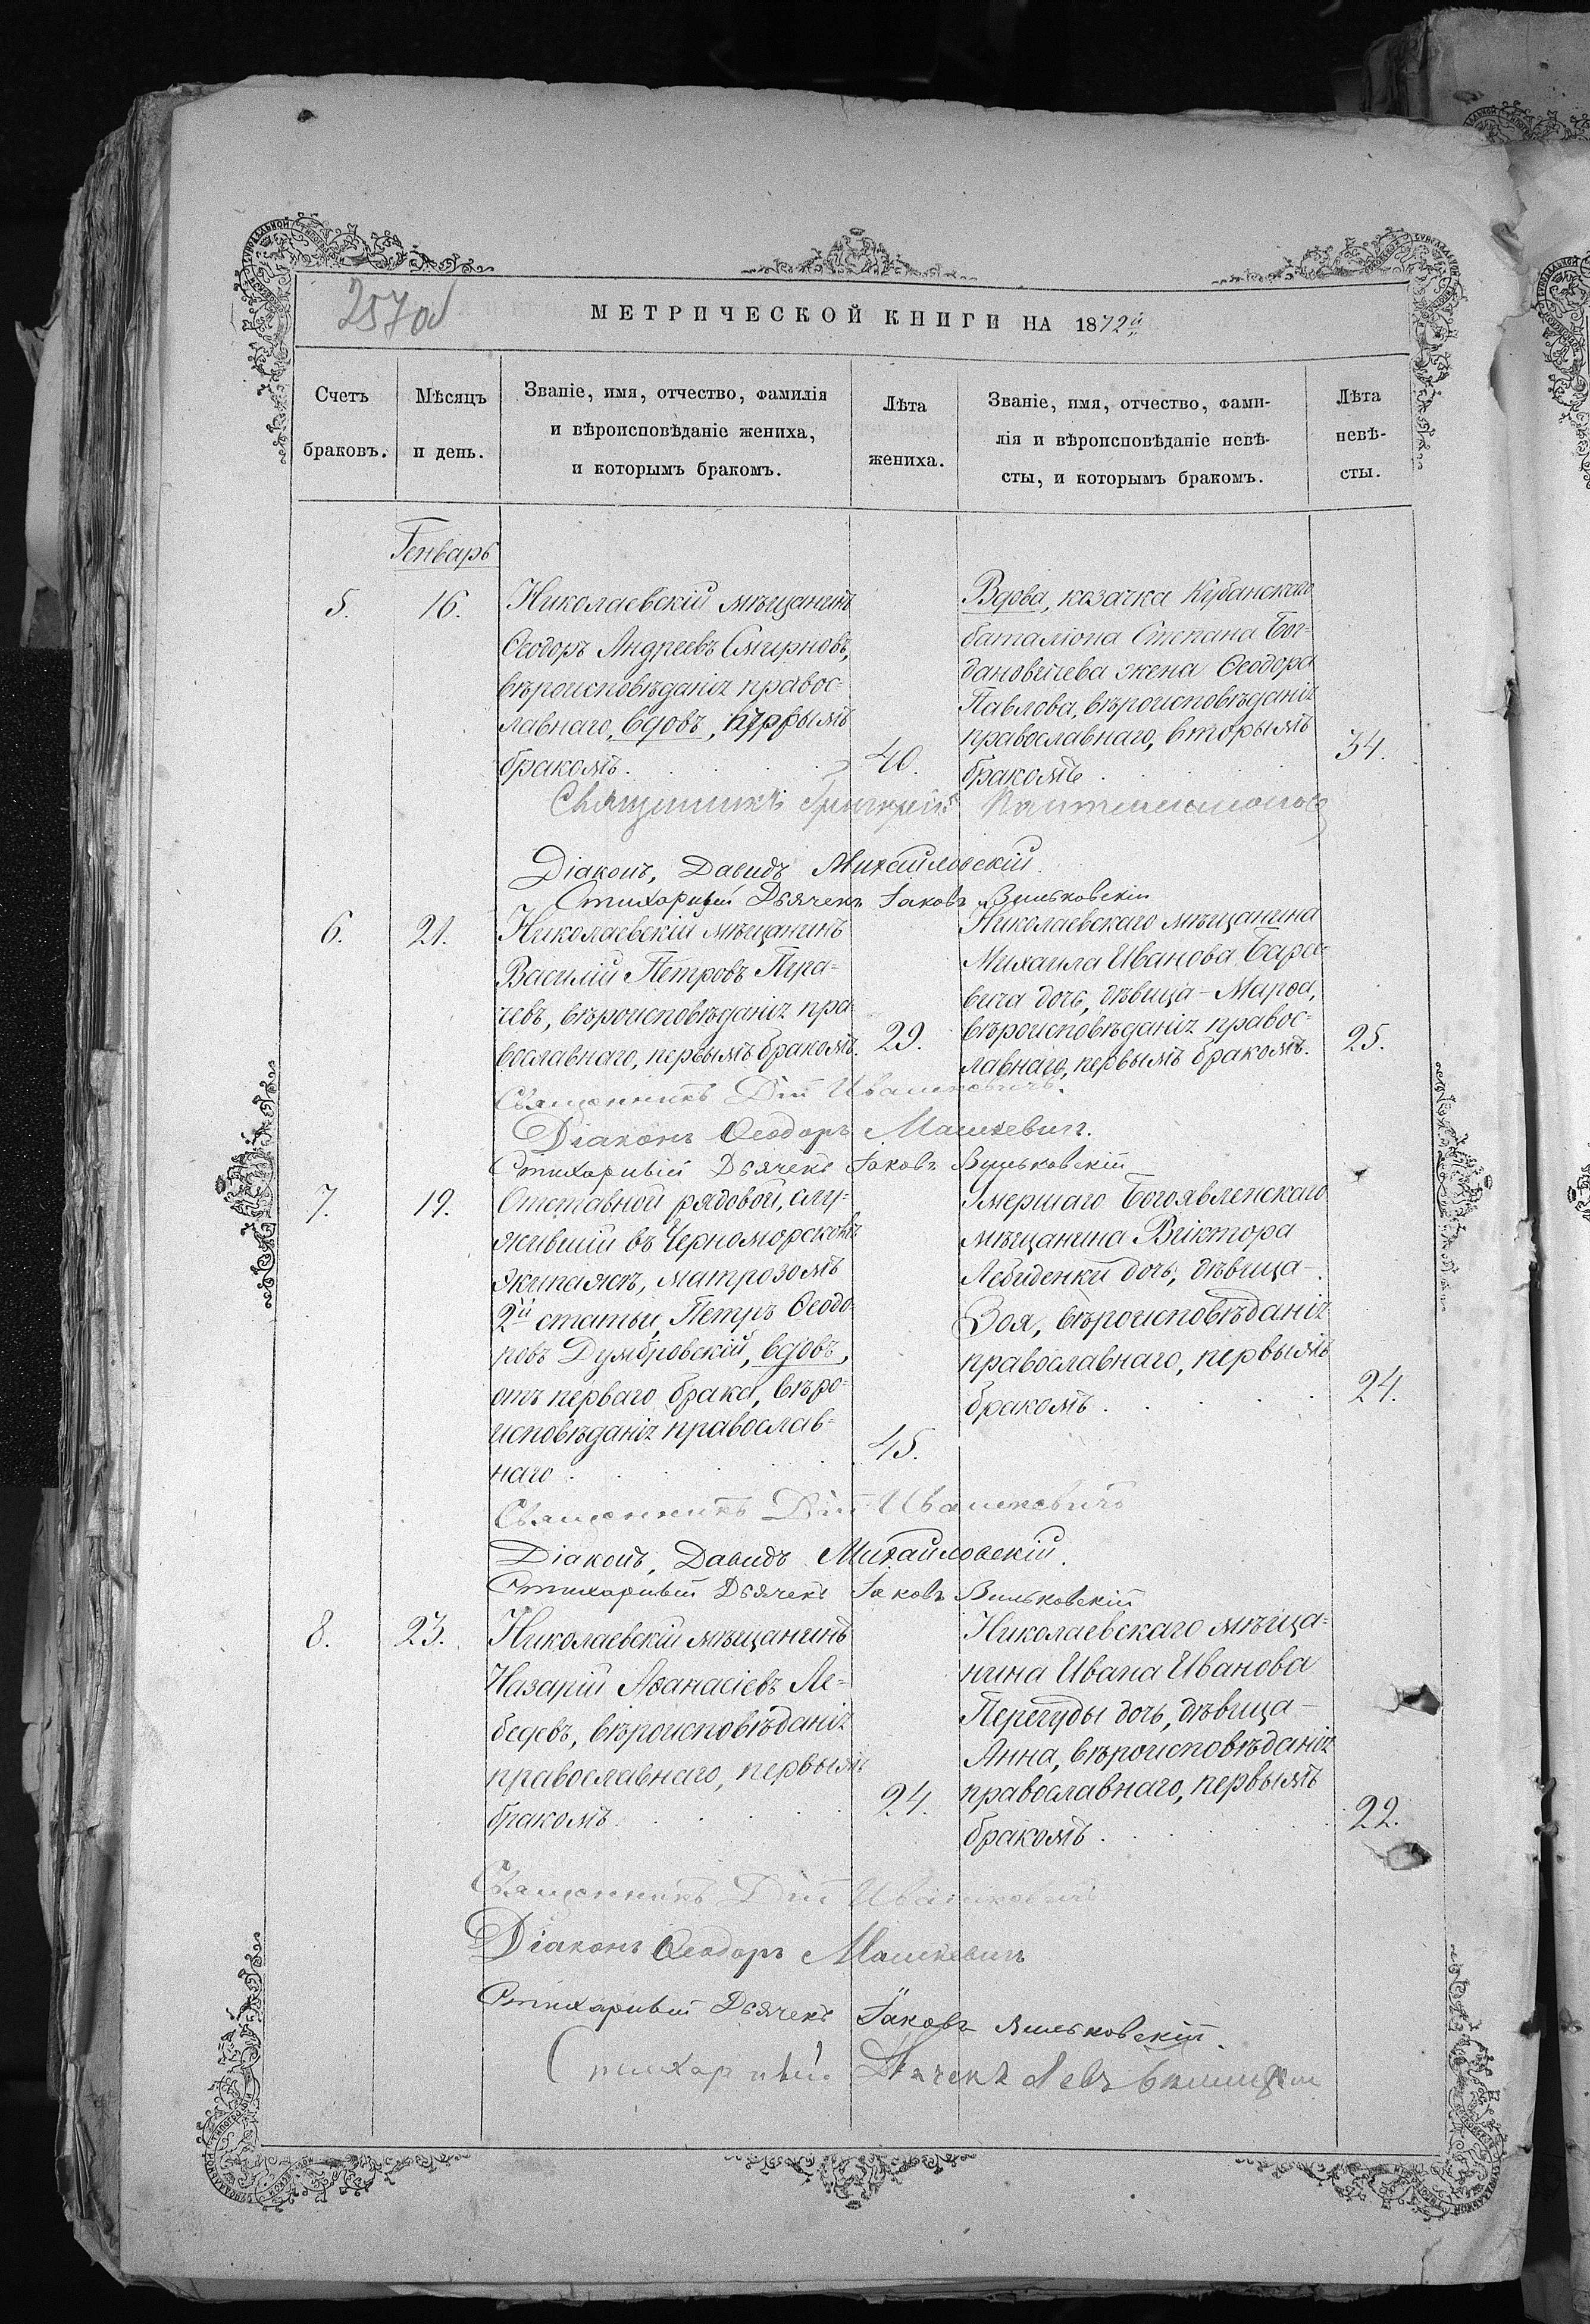 257 об
МЕТРИЧЕСКОЙ КНИГИ НА 1872й
Счетъ браковъ.
Мѣсяцъ и день.
Званіе, имя, отчество, фамилія
и вѣроисповѣданіе жениха,
и которымъ бракомъ.
Лѣта
жениха.
Званіе, имя, отчество, фами-
лія и вѣроисповѣданіе невѣ-
сты, и которымъ бракомъ.
Лѣта
невѣ-
сты.
Генварь
5.
16.
Николаевскій мѣщанинъ
Ѳеодоръ Андреевъ Смирновъ,
вѣроисповѣданія правос-
лавнаго, вдовъ,
бракомъ.
40.
Вдова, козачка Кубанскаго
баталіона Степана Бог-
дановичева жена Ѳеодора
Павлова, вѣроисповѣданія
православнаго, вторымъ
бракомъ
34.
Священникъ Григорій
Діаконъ, Давидъ Михайловскій.
Стихарный Дьячекъ Іаковъ Вильковскій
6.
21.
Николаевскій мѣщанинъ
Василій Петровъ
вѣроисповѣданія пра-
вославнаго, первымъ бракомъ.
29.
Николаевскаго мѣщанина
Михаила Иванова Бара-
вича дочь, дѣвица – Марѳа,
вѣроисповѣданія правос-
лавнаго, первымъ бракомъ.
25.
Священникъ Дій Ивашковичъ.
Діаконъ Ѳеодоръ Машкевич.
Стихарный Дьячекъ Іаковъ Вильковскій
7.
19.
Отставной рядовой, слу-
жившій въ Черноморскомъ
экипажѣ, матрозомъ
2й статьи, Петръ Ѳеодо-
ровъ Думбровскій, вдовъ,
отъ перваго брака, вѣро-
исповѣданія православ-
наго
45.
Умершаго Богоявленскаго
мѣщанина Виктора
Лебиденки дочь, дѣвица –
Зоя, вѣроисповѣданія
православнаго, первымъ
бракомъ
24.
Священникъ Дій Ивашковичъ
Діаконъ, Давидъ Михайловскій.
Стихарный Дьячекъ Іаковъ Вильковскій
8.
23.
Николаевскій мѣщанинъ
Назарій Аѳанасіевъ Ле-
бедевъ, вѣроисповѣданія
православнаго, первымъ
бракомъ
24.
Николаевскаго мѣща-
нина Ивана Иванова
Перегуды дочь, дѣвица –
Анна, вѣроисповѣданія
православнаго, первымъ
бракомъ
22.
Священникъ Дій Ивашковичъ
Діаконъ Ѳеодоръ Машкевичъ
Стихарный Дьячекъ Іаковъ Вильковскій.
Стихарный Дьячекъ Левъ